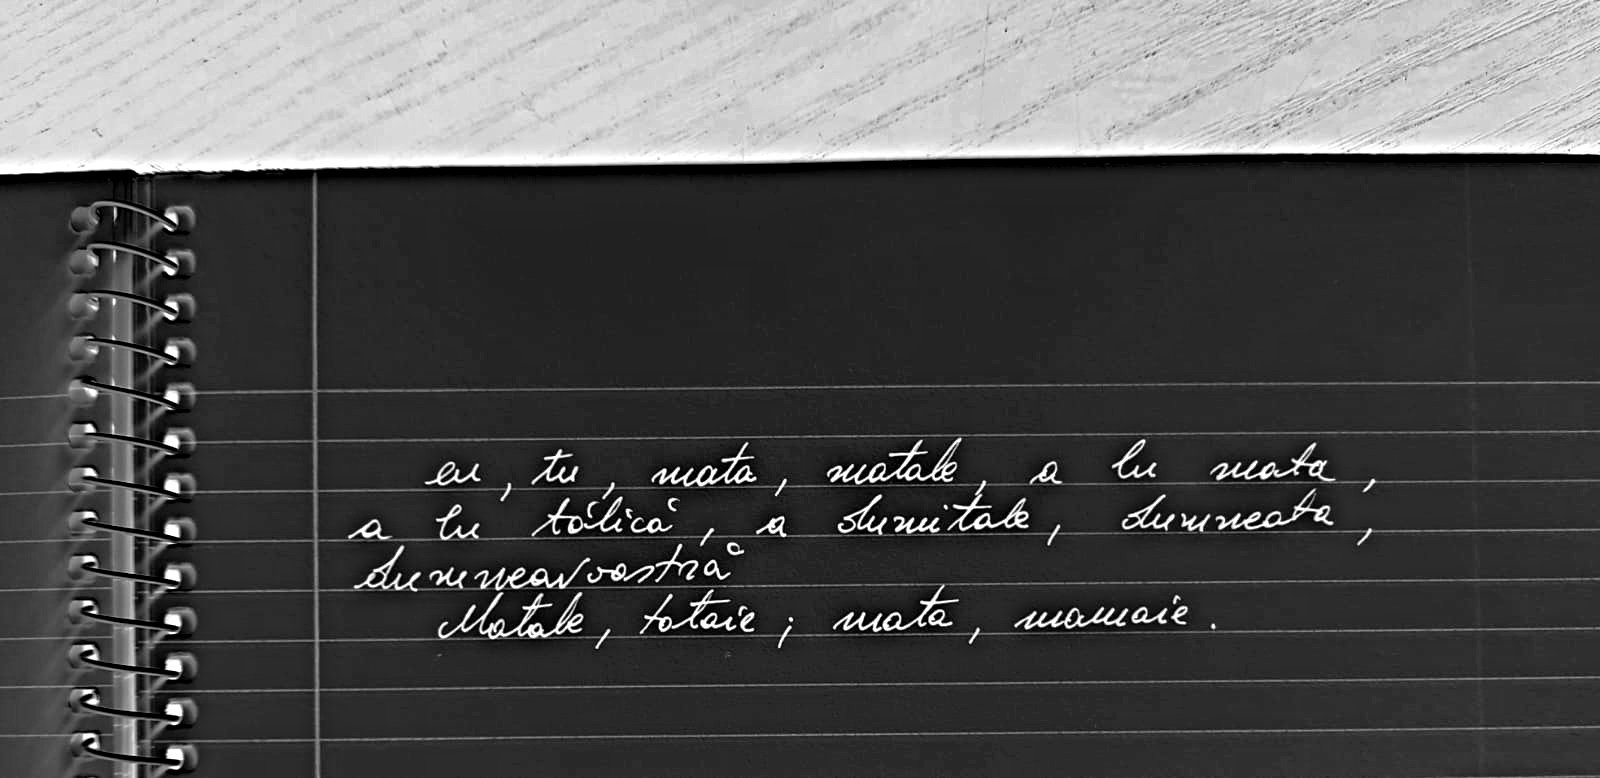 eu, tu, mata, matale, a lu mata,
a lu tălică, a dumitale, dumneata,
dumneavoastră
Matale, tataie; mata, mamaie.